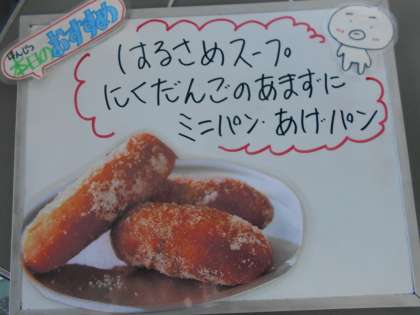 ほんじつ
本日のおすすめ
はるさめスープ
にくだんごのあまずに
ミニパン・あげパン